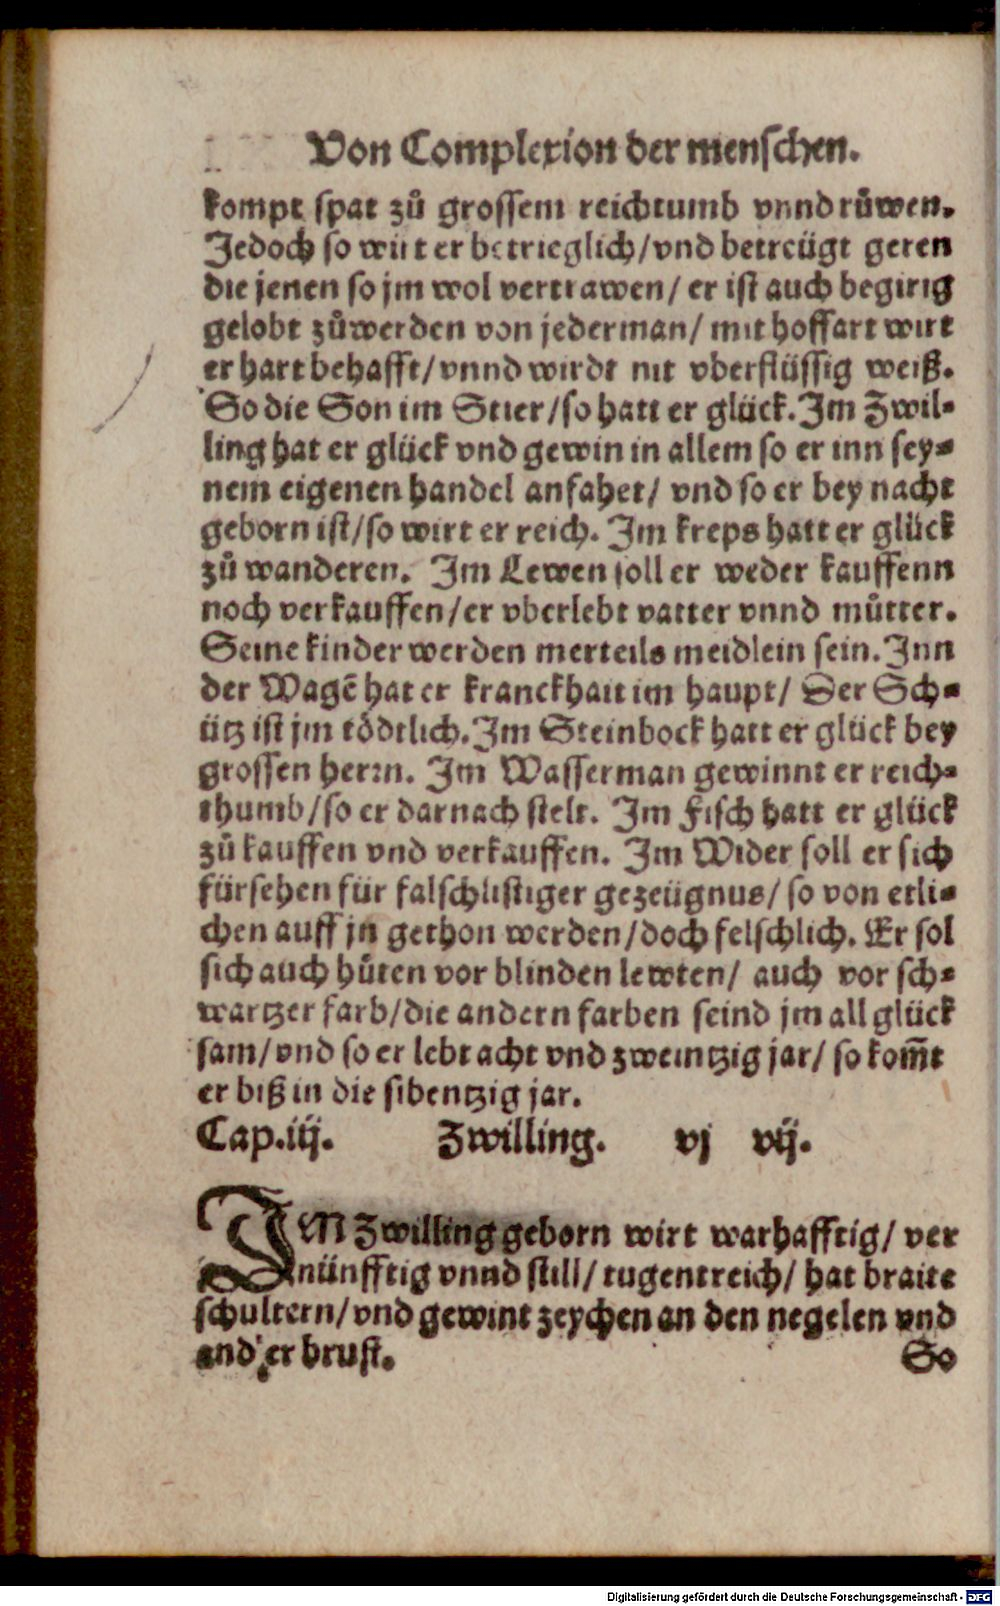 Von Complexion der menschen.
kompt spat zů grossem reichtumb vnnd růwen.
Jedoch so wirt er betrieglich/vnd betreügt geren
die jenen so jm wol vertrawen/ er ist auch begirig
gelobt zůwerden von jederman/ mit hoffart wirt
er hart behafft/vnnd wirdt nit vberflüssig weiß.
So die Son im Stier/so hatt er glück. Jm Zwil-
ling hat er glück vnd gewin in allem so er inn sey-
nem eigenen handel anfahet/ vnd so er bey nacht
geborn ist/so wirt er reich. Jm kreps hatt er glück
zů wanderen. Jm Lewen soll er weder kauffenn
noch verkauffen/er vberlebt vatter vnnd můtter.
Seine kinder werden merteils meidlein sein. Jnn
der Wagē hat er kranckhait im haupt/ Der Sch-
ütz ist jm tödtlich. Jm Steinbock hatt er glück bey
grossen herrn. Jm Wasserman gewinnt er reich-
thumb/so er darnach stelt. Jm Fisch hatt er glück
zů kauffen vnd verkauffen. Jm Wider soll er sich
fürsehen für falschlistiger gezeügnus/ so von etli-
chen auff jn gethon werden/doch felschlich. Er sol
sich auch hůten vor blinden lewten/ auch vor sch-
wartzer farb/die andern farben seind jm all glück
sam/vnd so er lebt acht vnd zweintzig jar/ so kom̄t
er biß in die sibentzig jar.
Cap.iij. Zwilling. vj vij.
JM Zwilling geborn wirt warhafftig/ ver
nünfftig vnnd still/ tugentreich/ hat braite
schultern/vnd gewint zeychen an den negelen vnd
and er brust. So
Digitalisierung gefördert durch die Deutsche Forschungsgemeinschaft - DFG